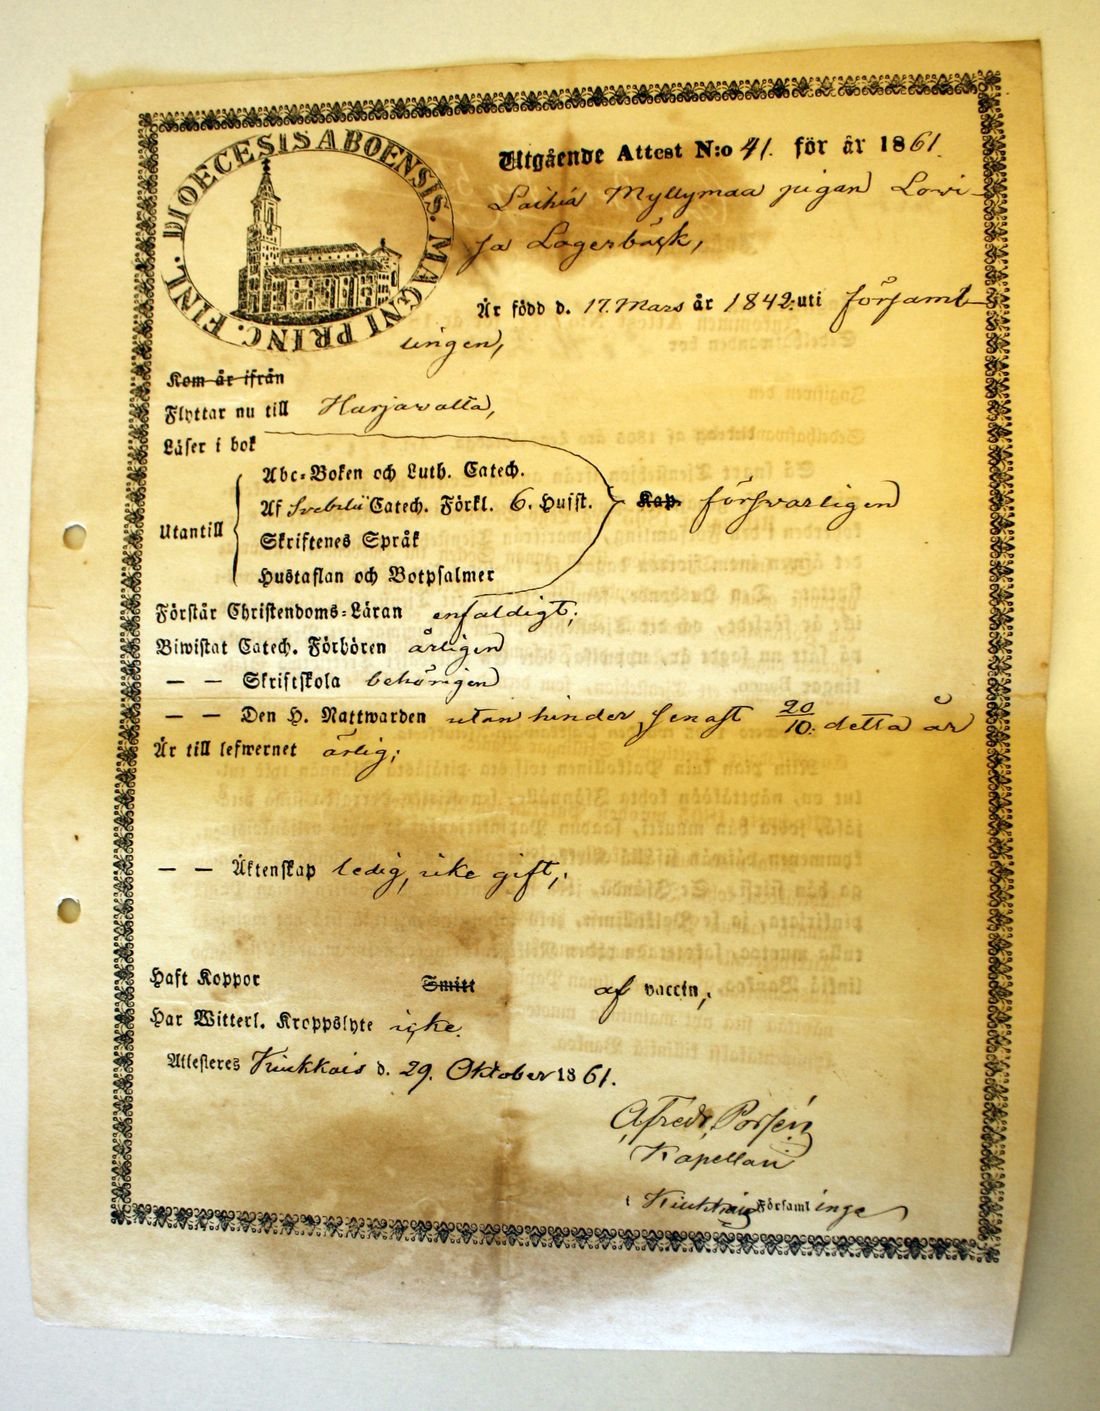 DIOECESIS ABOENSIS. MAGNI PRINC. FINL.
Utgående Attest N:o 41. för år 1861.
Laihia Myllymaa pigan Lowi-
sa Lagerbäck,
Är född d. 17. Mars år 1842. uti församl-
ingen,
Kom år ifrån
Flyttar nu till Harjavalta,
Läser i bok
Abc-Boken och Luth. Catech.
Utantill Af Svebelii Catech. Förkl. 6. Husst. Kap. försvarligen
Skriftenes Språk
Hustaflan och Botpsalmer
Förstår Christendoms-Läran enfaldigt;
Biwistat Catech. Förhören årligen
— — Skriftskola behörigen
— — Den H. Nattwarden utan hinder, senast 20/10. detta år
Är till lefwernet ärlig;
— — Äktenskap ledig, icke gift,.
Haft Koppor Smitt af vaccin,.
Har Witterl. Kroppslyte icke.
Attesteres Kiukkais d. 29. Oktober 1861.
Alfred, Porsén
Kapellan
i Kiukkais Församlinge